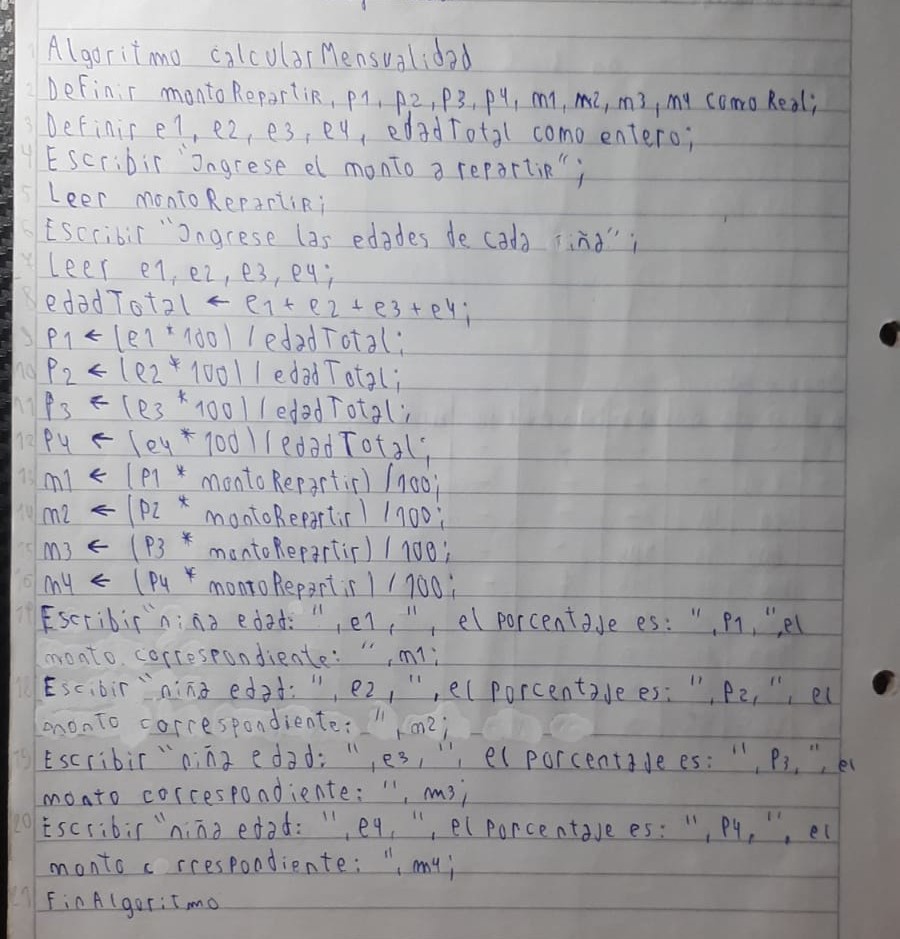 1 Algoritmo calcularMensualidad
2 Definir montoRepartir, p1, p2, p3, p4, m1, m2, m3, m4 como Real;
3 Definir e1, e2, e3, e4, edadTotal como entero;
4 Escribir "Ingrese el monto a repartir";
5 Leer montoRepartir;
6 Escribir "Ingrese las edades de cada niña";
7 Leer e1, e2, e3, e4;
8 edadTotal ← e1 + e2 + e3 + e4;
9 P1 ← (e1 * 100) / edadTotal;
10 P2 ← (e2 * 100) / edadTotal;
11 P3 ← (e3 * 100) / edadTotal;
12 P4 ← (e4 * 100) / edadTotal;
13 m1 ← (P1 * montoRepartir) / 100;
14 m2 ← (P2 * montoRepartir) / 100;
15 m3 ← (P3 * montoRepartir) / 100;
16 m4 ← (P4 * montoRepartir) / 100;
17 Escribir "niña edad: ", e1, ", el porcentaje es: ", P1, ", el
monto correspondiente: ", m1;
18 Escibir "niña edad: ", e2, ", el porcentaje es: ", P2, ", el
monto correspondiente: ", m2;
19 Escribir "niña edad: ", e3, ", el porcentaje es: ", P3, ", el
monto correspondiente: ", m3;
20 Escribir "niña edad: ", e4, ", el porcentaje es: ", P4, ", el
monto c rrespondiente: ", m4;
21 FinAlgoritmo